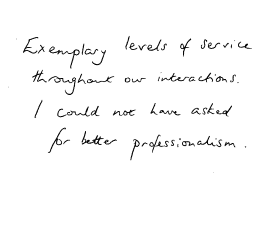 Exemplary levels of service
throughout our interactions.
I could not have asked
for better professionalism.